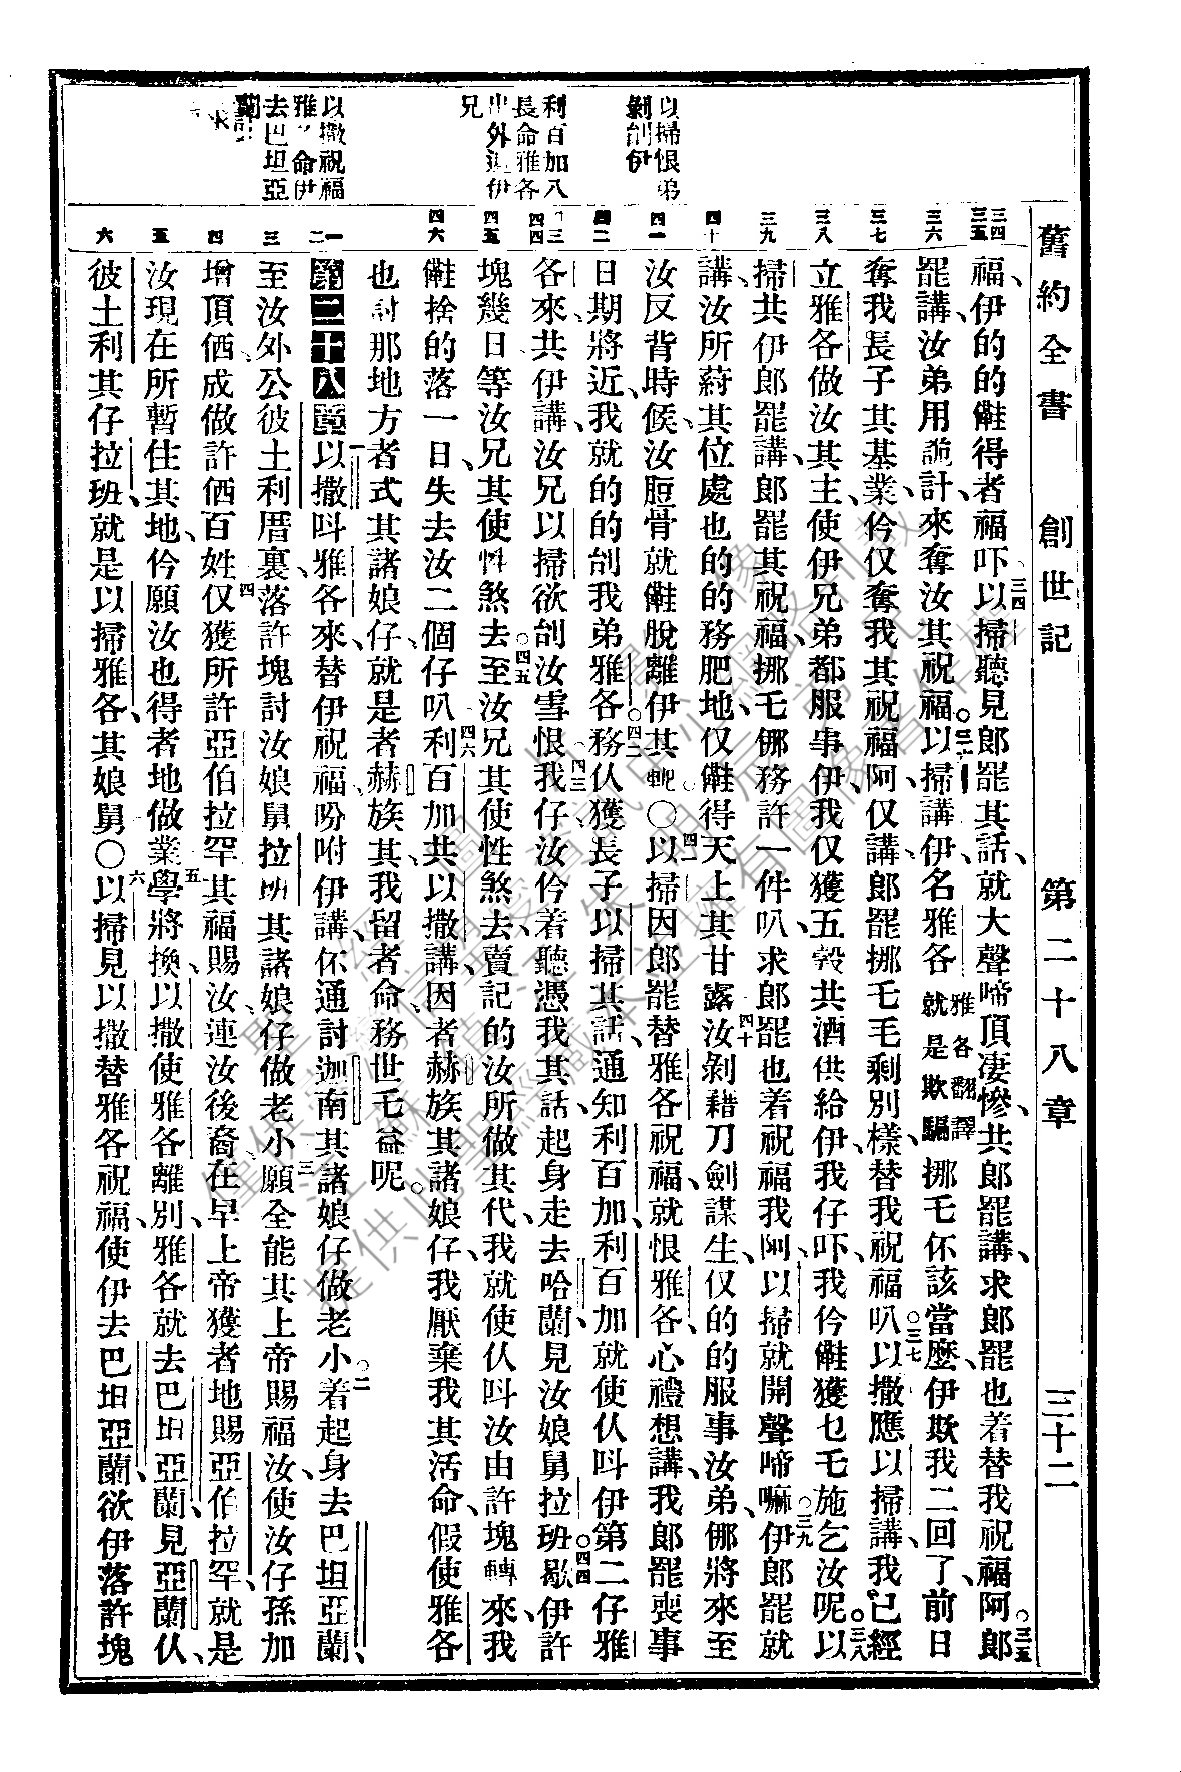 舊約全書　創世記　第二十八章　三十二
以掃恨弟
剝刣伊
利百加人
長命雅各
出外避伊
兄
以撒祝福
雅各命伊
去巴坦亞
三四 三五 三六 三七 三八 三九 四十 四一 四二 四三 四四 四五 四六 一 二 三 四 五 六
福、伊的的𣍐得者福吓、三四以掃聽見郎罷其話、就大聲啼頂凄慘、共郎罷講、求郎罷也着替我祝福阿、三五郎
罷講、汝弟用詭計、來奪汝其祝福。三六以掃講、伊名雅各雅各翻譯就是欺騙挪乇伓該當麽、伊欺我二回了、前日
奪我長子其基業、伶仅奪我其祝福阿、仅講、郎罷挪乇毛剩別樣、替我祝福叭、三七以撒應以掃講、我已經
立雅各做汝其主、使伊兄弟都服事伊、我仅獲五穀共酒供給伊、我仔吓、我伶𣍐獲乜乇施乞汝呢。三八以
掃共伊郎罷講、郎罷其祝福、挪乇㑚務許一件叭、求郎罷也着祝福我阿、以掃就開聲啼嘛、三九伊郎罷就
講、汝所蒔其位處、也的的務肥地、仅𣍐得天上其甘露、四十汝剝藉刀劍謀生、仅的的服事汝弟、㑚將來至
汝反背時候、汝脰骨就𣍐脫離伊其軛○四一以掃因郎罷替雅各祝福、就恨雅各、心禮想講、我郎罷喪事
日期將近、我就的的刣我弟雅各。四二務仈獲長子以掃其話、通知利百加、利百加就使仈叫伊第二仔雅
各來、共伊講、汝兄以掃欲刣汝雪恨、四三我仔汝伶着聽憑我其話、起身走去哈蘭、見汝娘舅拉班、四四歇伊許
塊幾日、等汝兄其使性煞去、四五至汝兄其使性煞去、賣記的汝所做其代、我就使仈叫汝由許塊轉來、我
𣍐捨的落一日失去汝二個仔叭、四六利百加共以撒講、因者赫族其諸娘仔、我厭棄我其活命、假使雅各
也討那地方者式其諸娘仔、就是者赫族其、我留者命、務世乇益呢。
第二十八章一以撒叫雅各來、替伊祝福、吩咐伊講、伓通討迦南其諸娘仔做老小、二着起身去巴坦亞蘭、
至汝外公彼土利厝裏、落許塊討汝娘舅拉班其諸娘仔做老小、三願全能其上帝賜福汝、使汝仔孫加
增頂価成做許価百姓、四仅獲所許亞伯拉罕其福賜汝、連汝後裔、在早上帝獲者地賜亞伯拉罕、就是
汝現在所暫住其地、伶願汝也得者地做業、五學將換以撒使雅各離別、雅各就去巴坦亞蘭、見亞蘭仈、
彼土利其仔拉班、就是以掃雅各其娘舅○六以掃見以撒替雅各祝福、使伊去巴坦亞蘭、欲伊落許塊